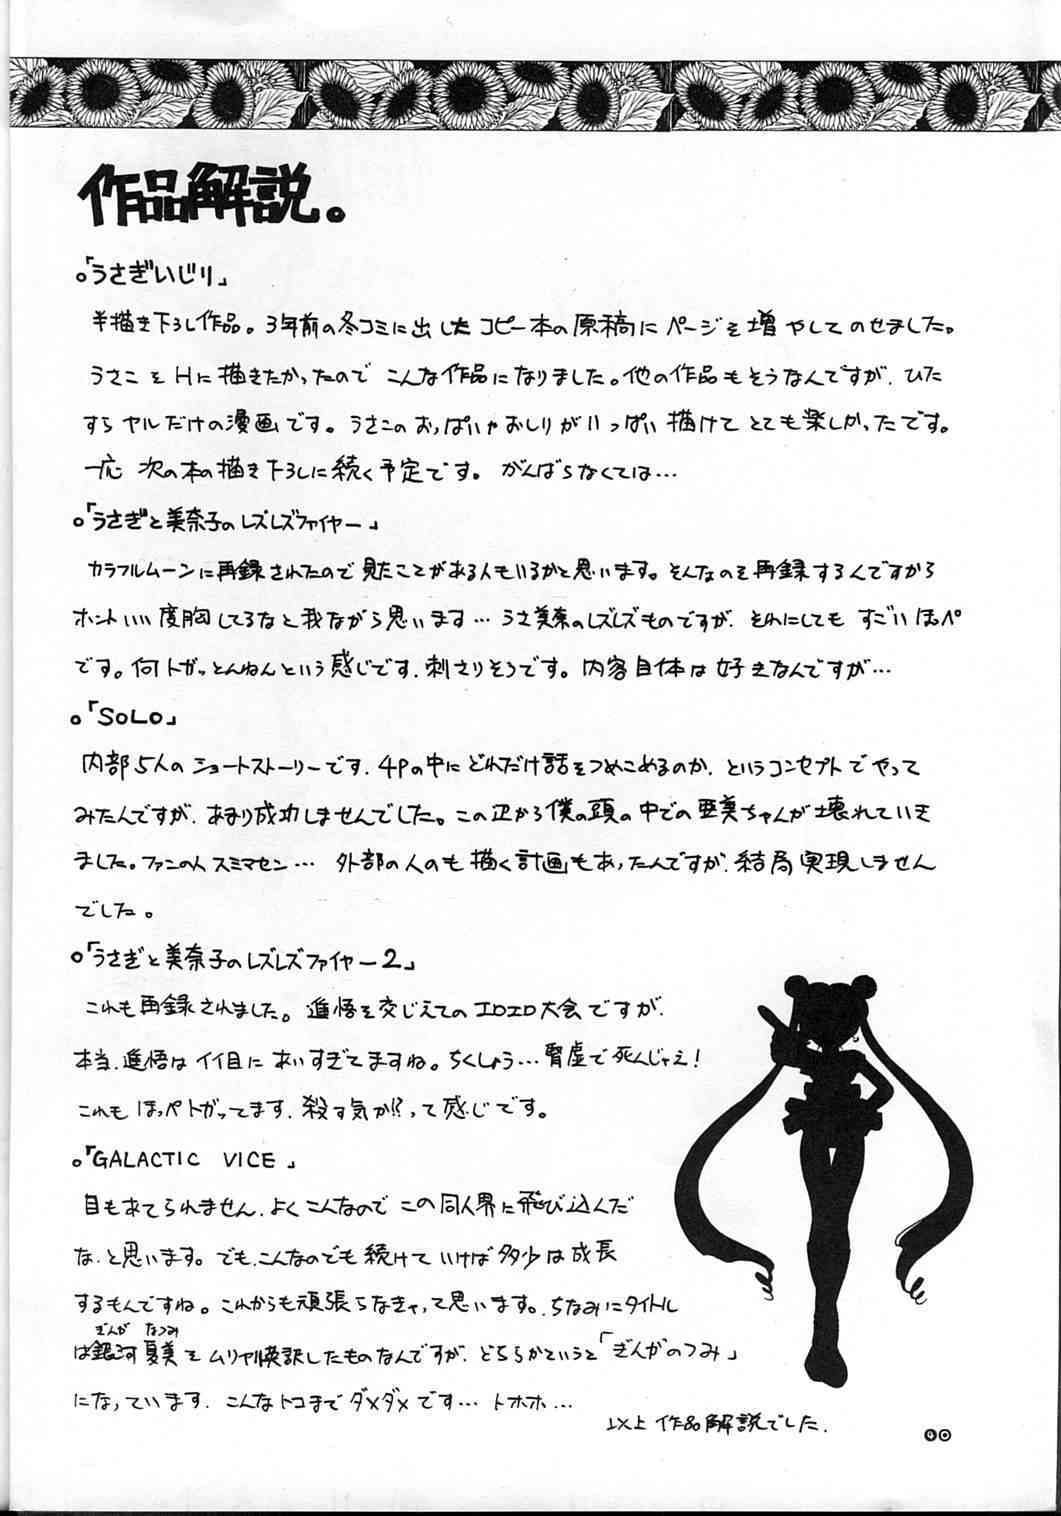 作品解説。
｡「うさぎいじり」
半描き下ろし作品。3年前の冬コミに出したコピー本の原稿にページを増やしてのせました。
うさこをHに描きたかったのでこんな作品になりました。他の作品もそうなんですが、ひた
すらヤルだけの漫画です。うさこのおっぱいやおしりがいっぱい描けてとても楽しかったです。
一応 次の本の描き下ろしに続く予定です。がんばらなくては…
｡「うさぎと美奈子のレズレズファイヤー」
カラフルムーンに再録されたので見たことがある人もいるかと思います。そんなのを再録するんですから
ホントいい度胸してるなと我ながら思います…うさ美奈のレズレズものですが、それにしても すごいほっペ
です。何トガっとんねんという感じです、刺さりそうです。内容自体は好きなんですが…
｡「SOLO」
内部5人のショートストーリーです、4Pの中にどれだけ話をつめこめるのか、というコンセプトでやって
みたんですが、あまり成功しませんでした。この辺から僕の頭の中での亜美ちゃんが壊れていき
ました。ファンの人スミマセン… 外部の人のも描く計画もあったんですが、結局実現しません
でした。
｡「うさぎと美奈子のレズレズファイヤー2」
これも再録されました。進悟を交じえてのエロエロ大会ですが、
本当、進悟はイイ目にあいすぎてますね。ちくしょう…腎虚で死んじゃえ!
これもほっぺトガッてます、殺す気か!?って感じです。
｡「GALACTIC VICE」
目もあてられません、よくこんなのでこの同人界に飛び込んだ
な、と思います。でも、こんなのでも続けていけば多少は成長
するもんですね。これからも頑張らなきゃって思います。ちなみにタイトル
ぎんが なつみ
は銀河夏美をムリヤリ英訳したものなんですが、どちらかというと「ぎんがのつみ」
になっています、こんなトコまでダメダメです…トホホ…
以上 作品解説でした.
40